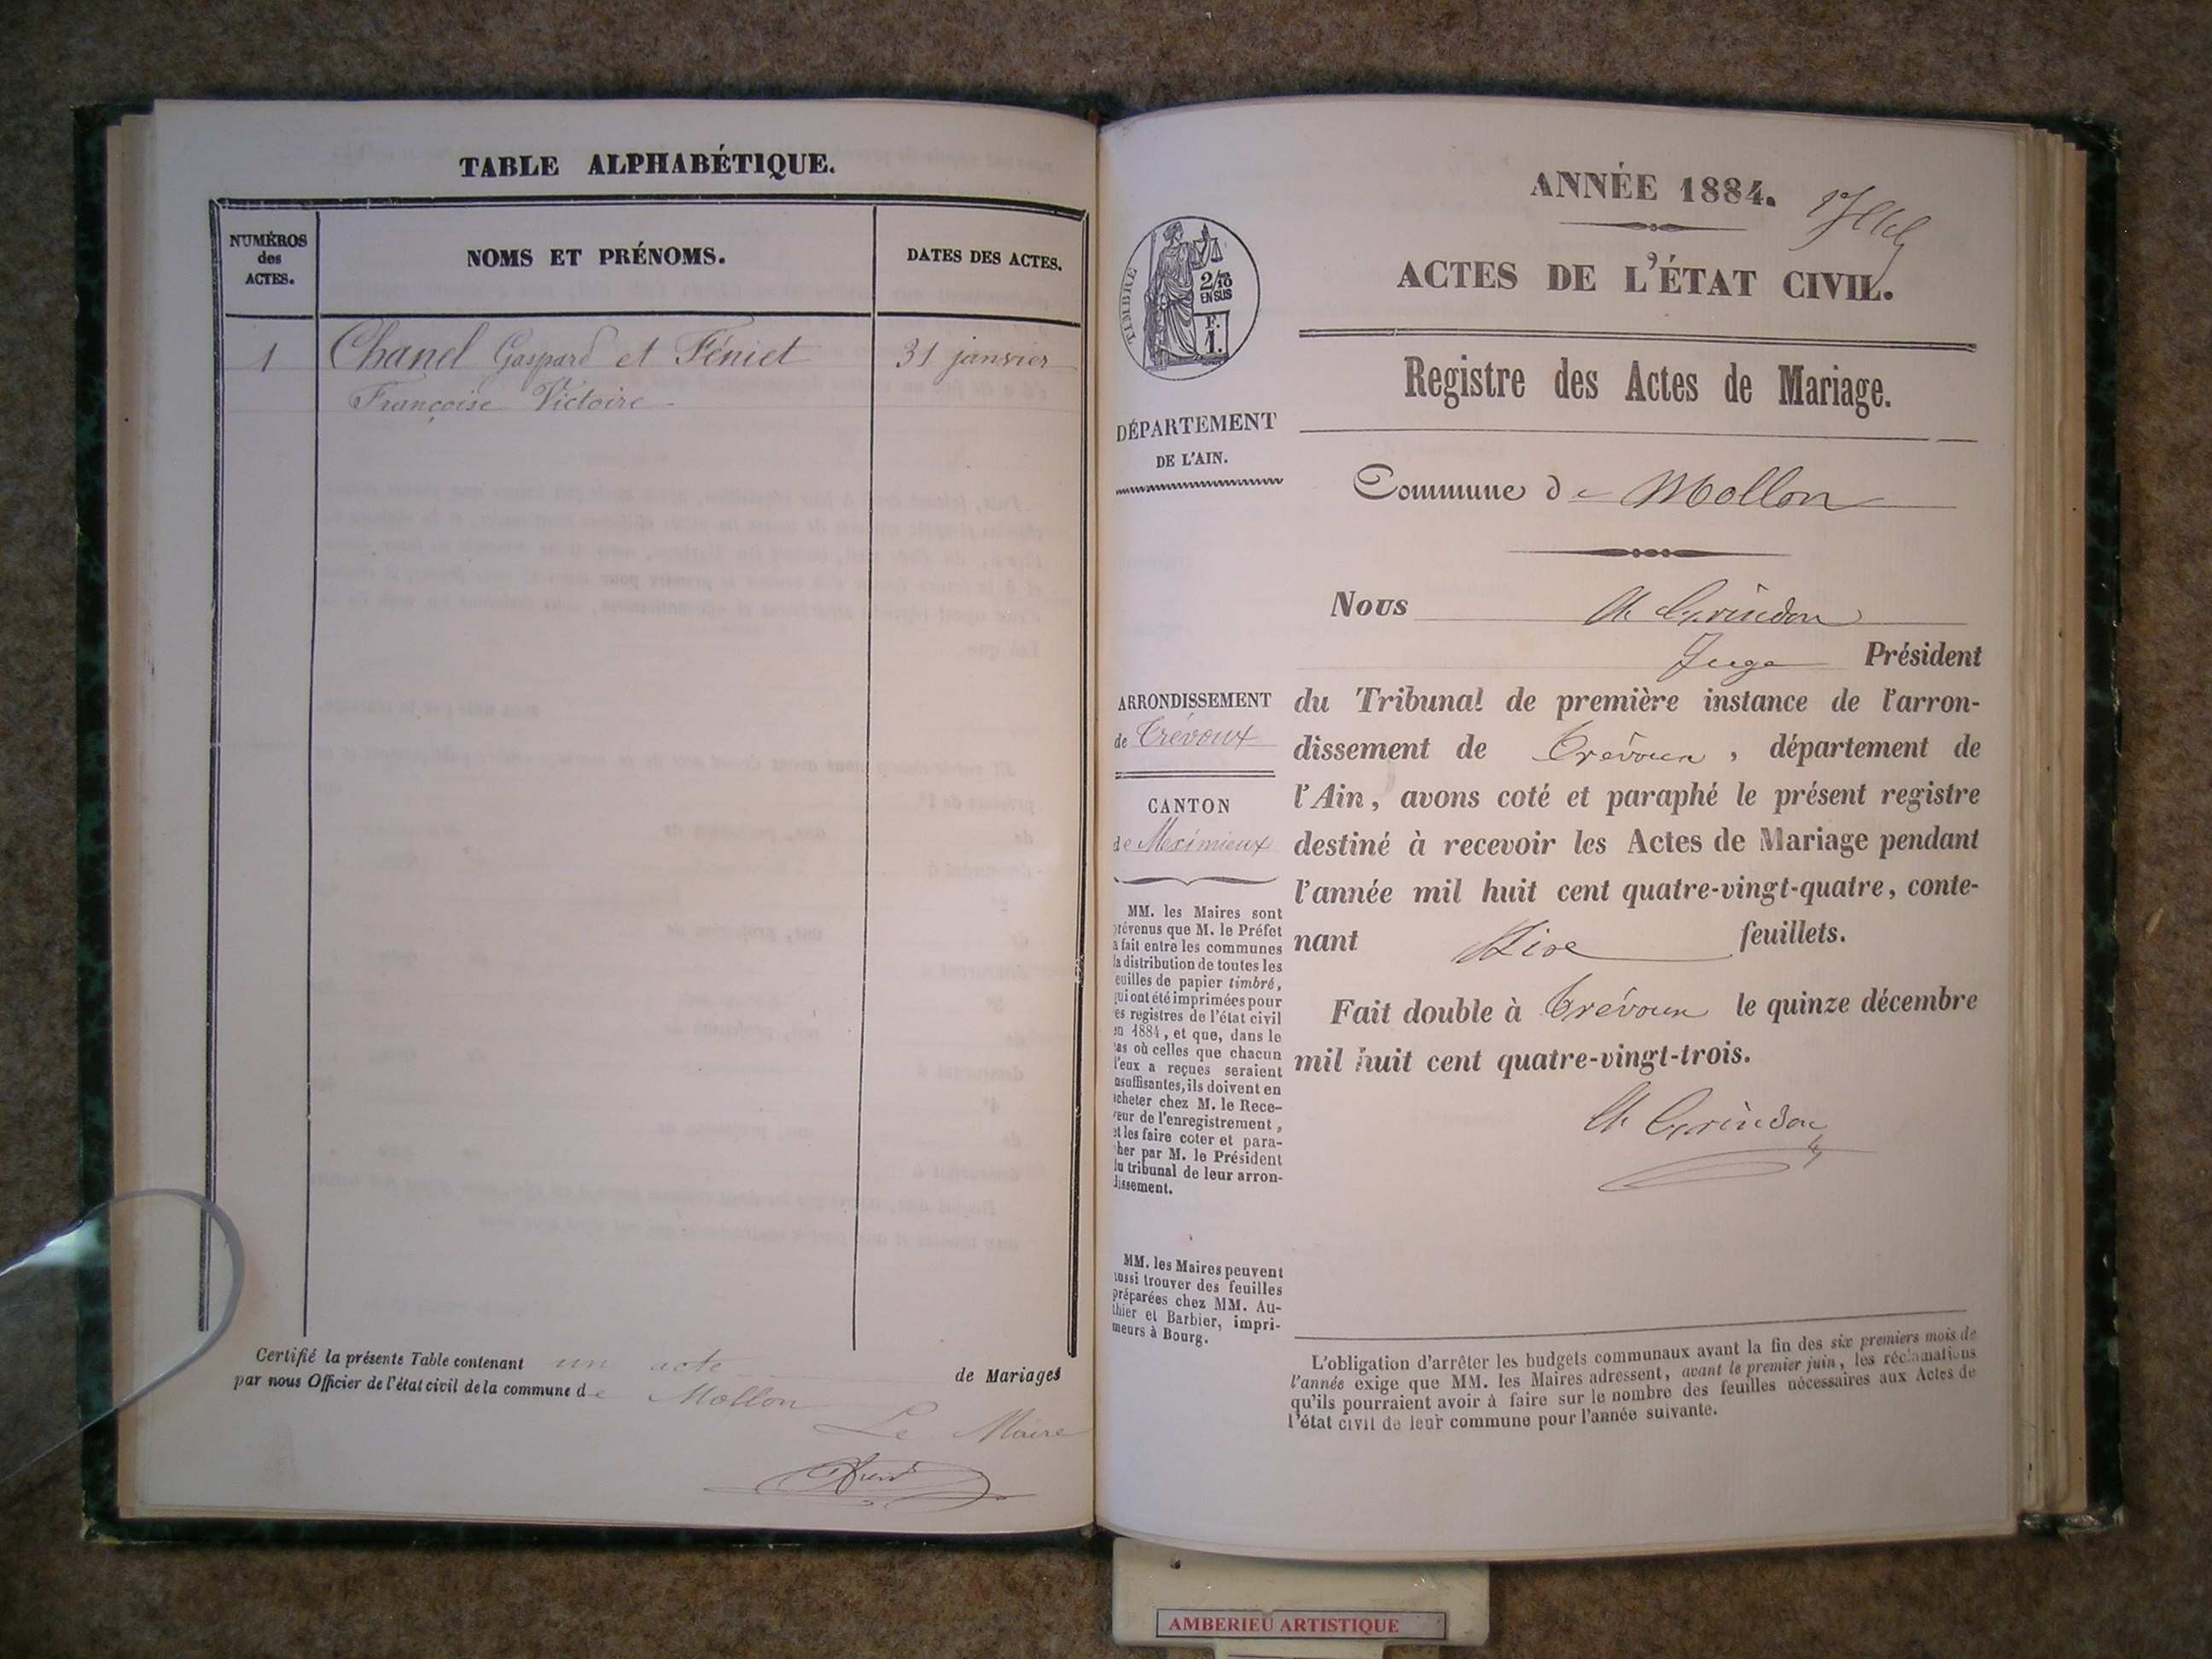 TABLE ALPHABÉTIQUE.
NUMÉROS
des
ACTES.
NOMS ET PRÉNOMS.
DATES DES ACTES.
1 Chanel Gaspard et Féniet 31 janvier
Françoise Victoire
Certifié la présente Table contenant un acte de Mariages
par nous Officier de l'état civil de la commune de Mollon
Le Maire
ANNÉE 1884.
ACTES DE L'ÉTAT CIVIL.
TIMBRE
2/10
EN SUS
F.
1.
Registre des Actes de Mariage.
DÉPARTEMENT
DE L'AIN.
Commune de Mollon
Nous Ch Grindon
Juge Président
du Tribunal de première instance de l'arron-
dissement de Trévoux, département de
l'Ain, avons coté et paraphé le présent registre
destiné à recevoir les Actes de Mariage pendant
l'année mil huit cent quatre-vingt-quatre, conte-
nant feuillets.
Fait double à Trévoux le quinze décembre
mil huit cent quatre-vingt-trois.
Ch Grindon
ARRONDISSEMENT
de Trévoux
CANTON
de Meximieux
MM. les Maires sont
prévenus que M. le Préfet
a fait entre les communes
la distribution de toutes les
feuilles de papier timbré,
qui ont été imprimées pour
les registres de l'état civil
en 1884, et que, dans le
cas où celles que chacun
d'eux a reçues seraient
insuffisantes, ils doivent en
acheter chez M. le Rece-
veur de l'enregistrement,
et les faire coter et para-
pher par M. le Président
du tribunal de leur arron-
dissement.
MM. les Maires peuvent
aussi trouver des feuilles
préparées chez MM. Au-
thier et Barbier, impri-
meurs à Bourg.
L'obligation d'arrêter les budgets communaux avant la fin des six premiers mois de
l'année exige que MM. les Maires adressent, avant le premier juin, les réclamations
qu'ils pourraient avoir à faire sur le nombre des feuilles nécessaires aux Actes de
l'état civil de leur commune pour l'année suivante.
AMBERIEU ARTISTIQUE